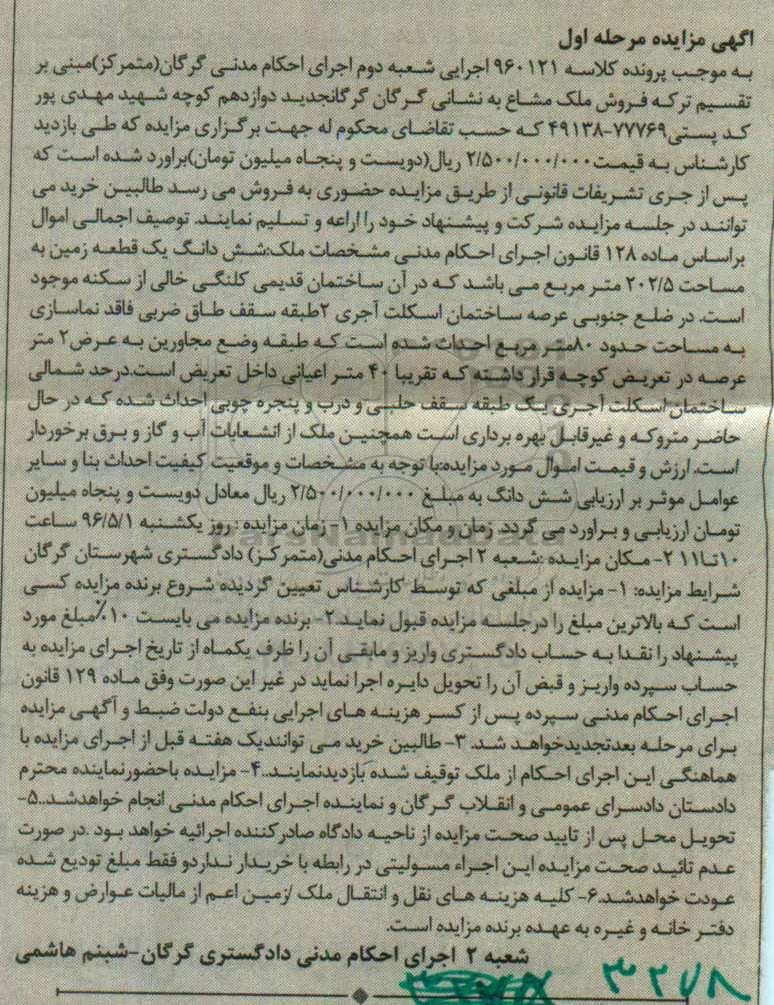 اگهی مزایده مرحله اول
به موجب پرونده کلاسه ۹۶۰۱۲۱ اجرایی شعبه دوم اجرای احکام مدنی گرگان(متمرکز)مبنی بر
تقسیم ترکه فروش ملک مشاع به نشانی گرگان گرگانجدید دوازدهم کوچه شهید مهدی پور
کد پستی۷۷۷۶۹-۴۹۱۳۸ که حسب تقاضای محکوم له جهت برگزاری مزایده که طی بازدید
کارشناس به قیمت۲/۵۰۰/۰۰۰/۰۰۰ ریال(دویست و پنجاه میلیون تومان)براورد شده است که
پس از جری تشریفات قانونی از طریق مزایده حضوری به فروش می رسد طالبین خرید می
توانند در جلسه مزایده شرکت و پیشنهاد خود را اراعه و تسلیم نمایند. توصیف اجمالی اموال
براساس ماده ۱۲۸ قانون اجرای احکام مدنی مشخصات ملک:شش دانگ یک قطعه زمین به
مساحت ۲۰۲/۵ متر مربع می باشد که در آن ساختمان قدیمی کلنگی خالی از سکنه موجود
است. در ضلع جنوبی عرصه ساختمان اسکلت آجری ۲طبقه سقف طاق ضربی فاقد نماسازی
به مساحت حدود ۸۰متر مربع احداث شده است که طبقه وضع مجاورین به عرض۲ متر
عرصه در تعریض کوچه قرار داشته که تقریبا ۴۰ متر اعیانی داخل تعریض است.درحد شمالی
ساختمان اسکلت آجری یک طبقه سقف حلبی و درب و پنجره چوبی احداث شده که در حال
حاضر متروکه و غیرقابل بهره برداری است همچنین ملک از انشعابات آب و گاز و برق برخوردار
است. ارزش و قیمت اموال مورد مزایده:با توجه به مشخصات و موقعیت کیفیت احداث بنا و سایر
عوامل موثر بر ارزیابی شش دانگ به مبلغ ۲/۵۰۰/۰۰۰/۰۰۰ ریال معادل دویست و پنجاه میلیون
تومان ارزیابی و براورد می گردد. زمان و مکان مزایده ۱- زمان مزایده : روز یکشنبه ۹۶/۵/۱ ساعت
۱۰تا۱۱ ۲- مکان مزایده :شعبه ۲ اجرای احکام مدنی(متمرکز) دادگستری شهرستان گرگان
شرایط مزایده: ۱- مزایده از مبلغی که توسط کارشناس تعیین گردیده شروع برنده مزایده کسی
است که بالاترین مبلغ را درجلسه مزایده قبول نماید.۲- برنده مزایده می بایست ۱۰٪مبلغ مورد
پیشنهاد را نقدا به حساب دادگستری واریز و مابقی آن را ظرف یکماه از تاریخ اجرای مزایده به
حساب سپرده واریز و قبض آن را تحویل دایره اجرا نماید در غیر این صورت وفق ماده ۱۲۹ قانون
اجرای احکام مدنی سپرده پس از کسر هزینه های اجرایی بنفع دولت ضبط و آگهی مزایده
برای مرحله بعدتجدیدخواهد شد. ۳- طالبین خرید می توانندیک هفته قبل از اجرای مزایده با
هماهنگی این اجرای احکام از ملک توقیف شده بازدیدنمایند..۴- مزایده باحضورنماینده محترم
دادستان دادسرای عمومی و انقلاب گرگان و نماینده اجرای احکام مدنی انجام خواهدشد..۵-
تحویل محل پس از تایید صحت مزایده از ناحیه دادگاه صادرکننده اجرائیه خواهد بود .در صورت
عدم تائید صحت مزایده این اجراء مسولیتی در رابطه با خریدار نداردو فقط مبلغ تودیع شده
عودت خواهدشد.۶- کلیه هزینه های نقل و انتقال ملک /زمین اعم از مالیات عوارض و هزینه
دفتر خانه و غیره به عهده برنده مزایده است.
شعبه ۲ اجرای احکام مدنی دادگستری گرگان-شبنم هاشمی
۳۲۷۸